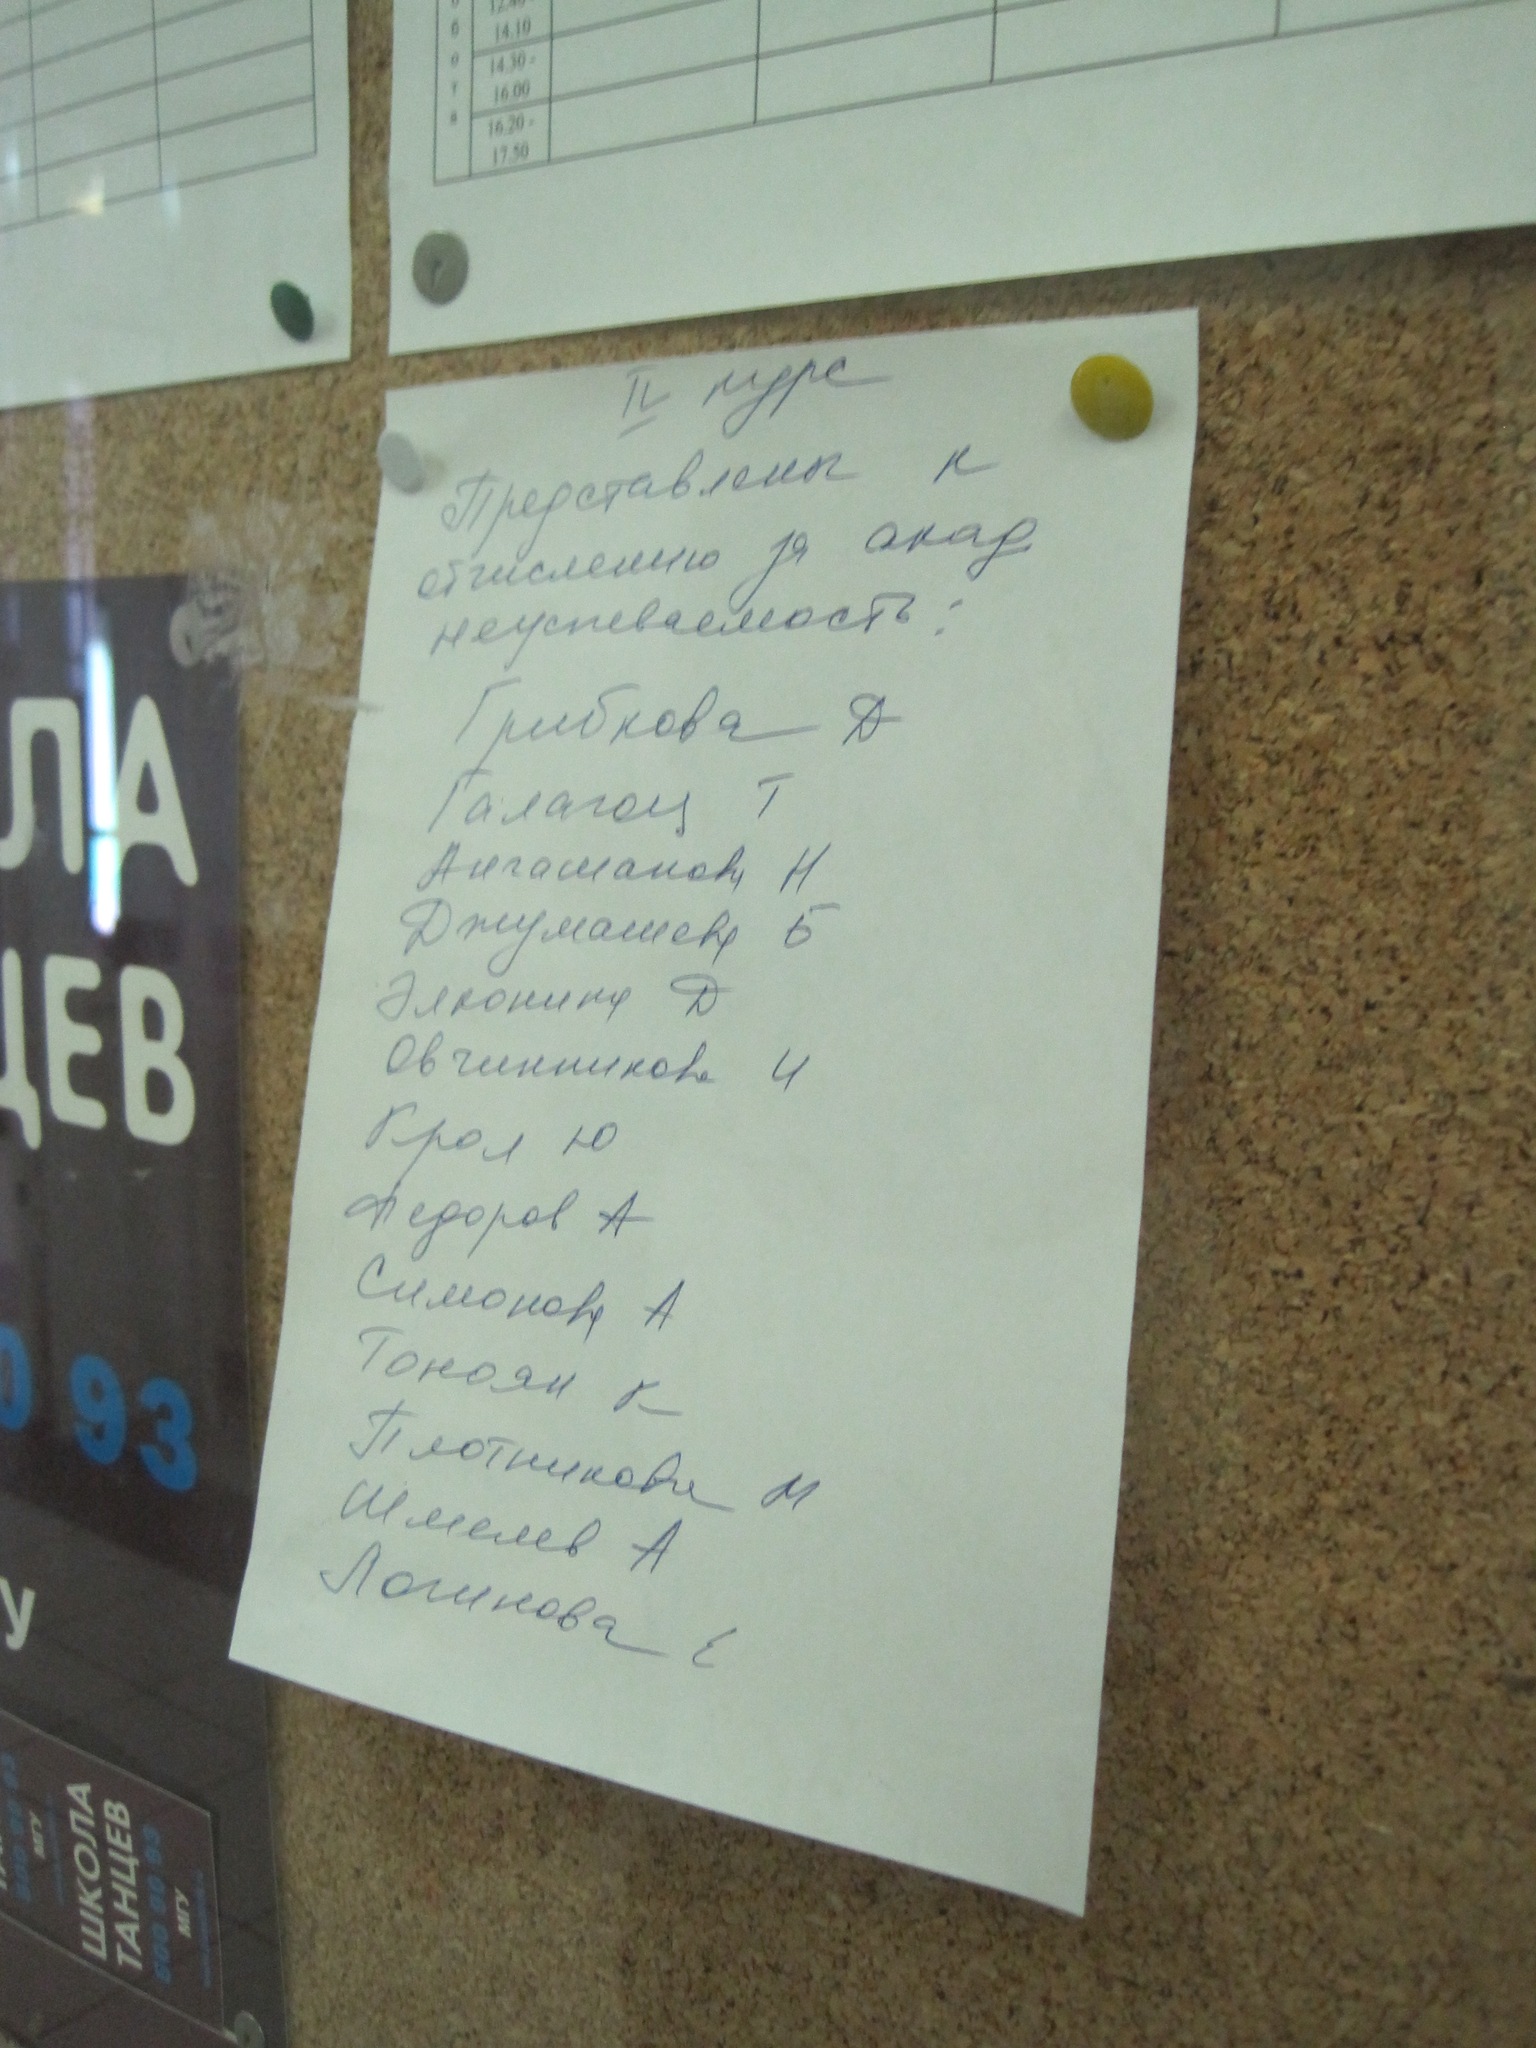 14.10
14.30 -
16.00
16.20 -
17.50
II курс
Представлены к
отчислению за акад
неуспеваемость:
Грибкова Д
Галагоц Т
Ангаманова Н
Джумашева Б
Элконина Д
Овчинникова И
Крол Ю
Федоров А
Симонова А
Тоноян К
Плотникова М
Шмелев А
Логинова Е
ЛА
ЦЕВ
0 93
У
ШКОЛА
ТАНЦЕВ
МГУ
МГУ